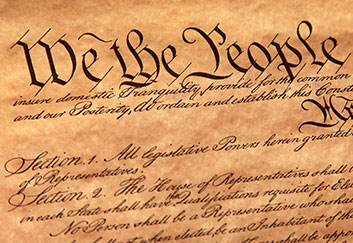 We the People
insure domestic Tranquility, provide for the common
and our Posterity, do ordain and establish this Const
Section. 1. All legislative Powers herein granted
of Representatives.
Section. 2. The House of Representatives shall
in each State shall have the Qualifications requisite for Elec
No Person shall be a Representative who shall
when elected, be an Inhabitant of th